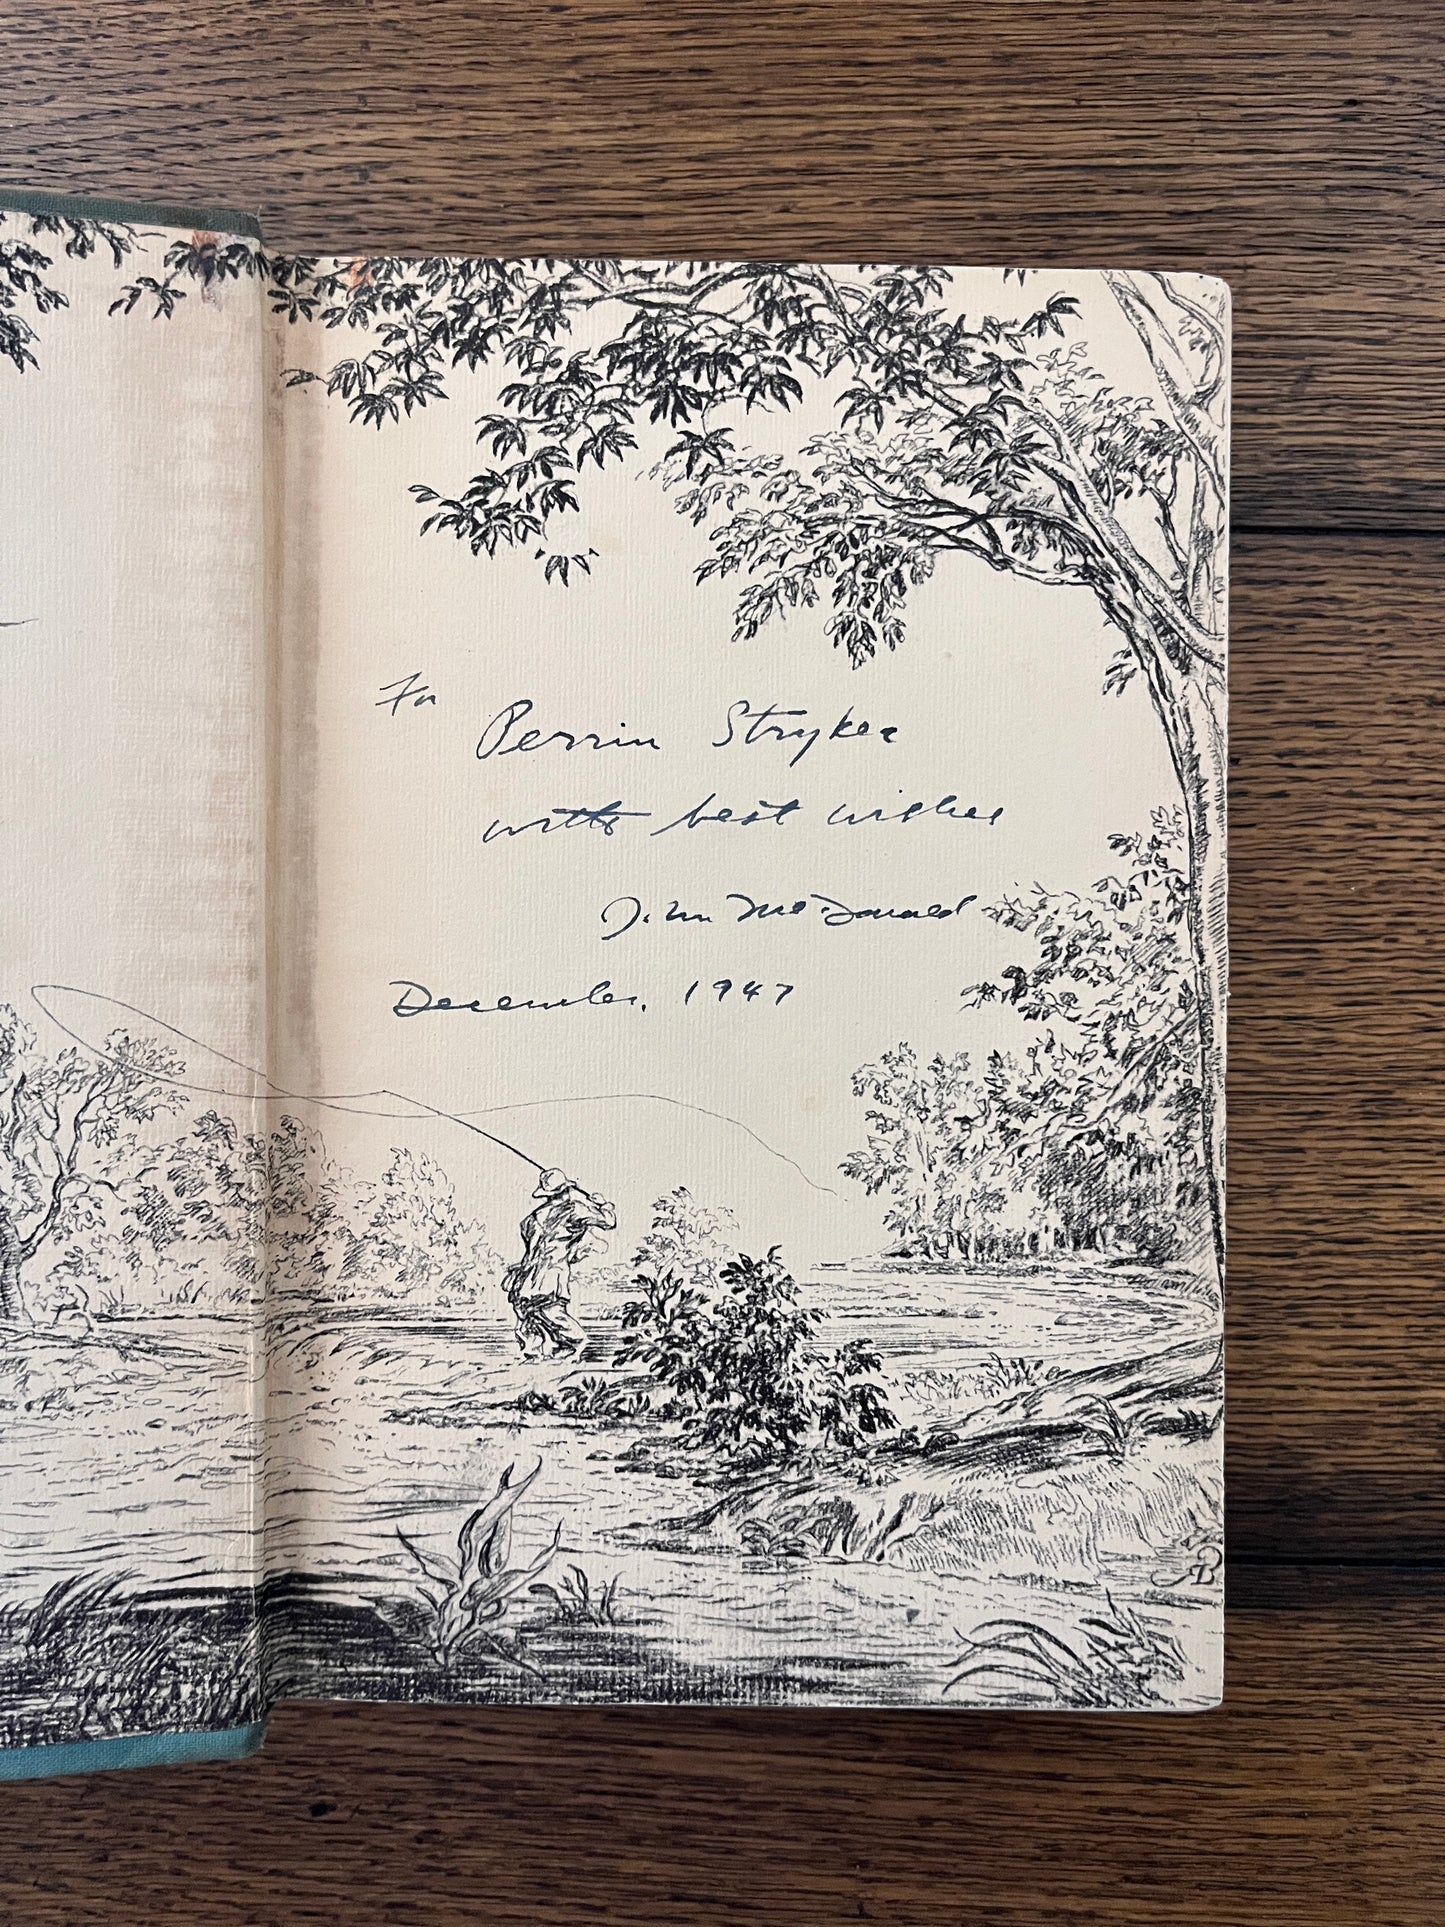 For
Perrin Stryker
with best wishes
John McDonald
December, 1947
AB